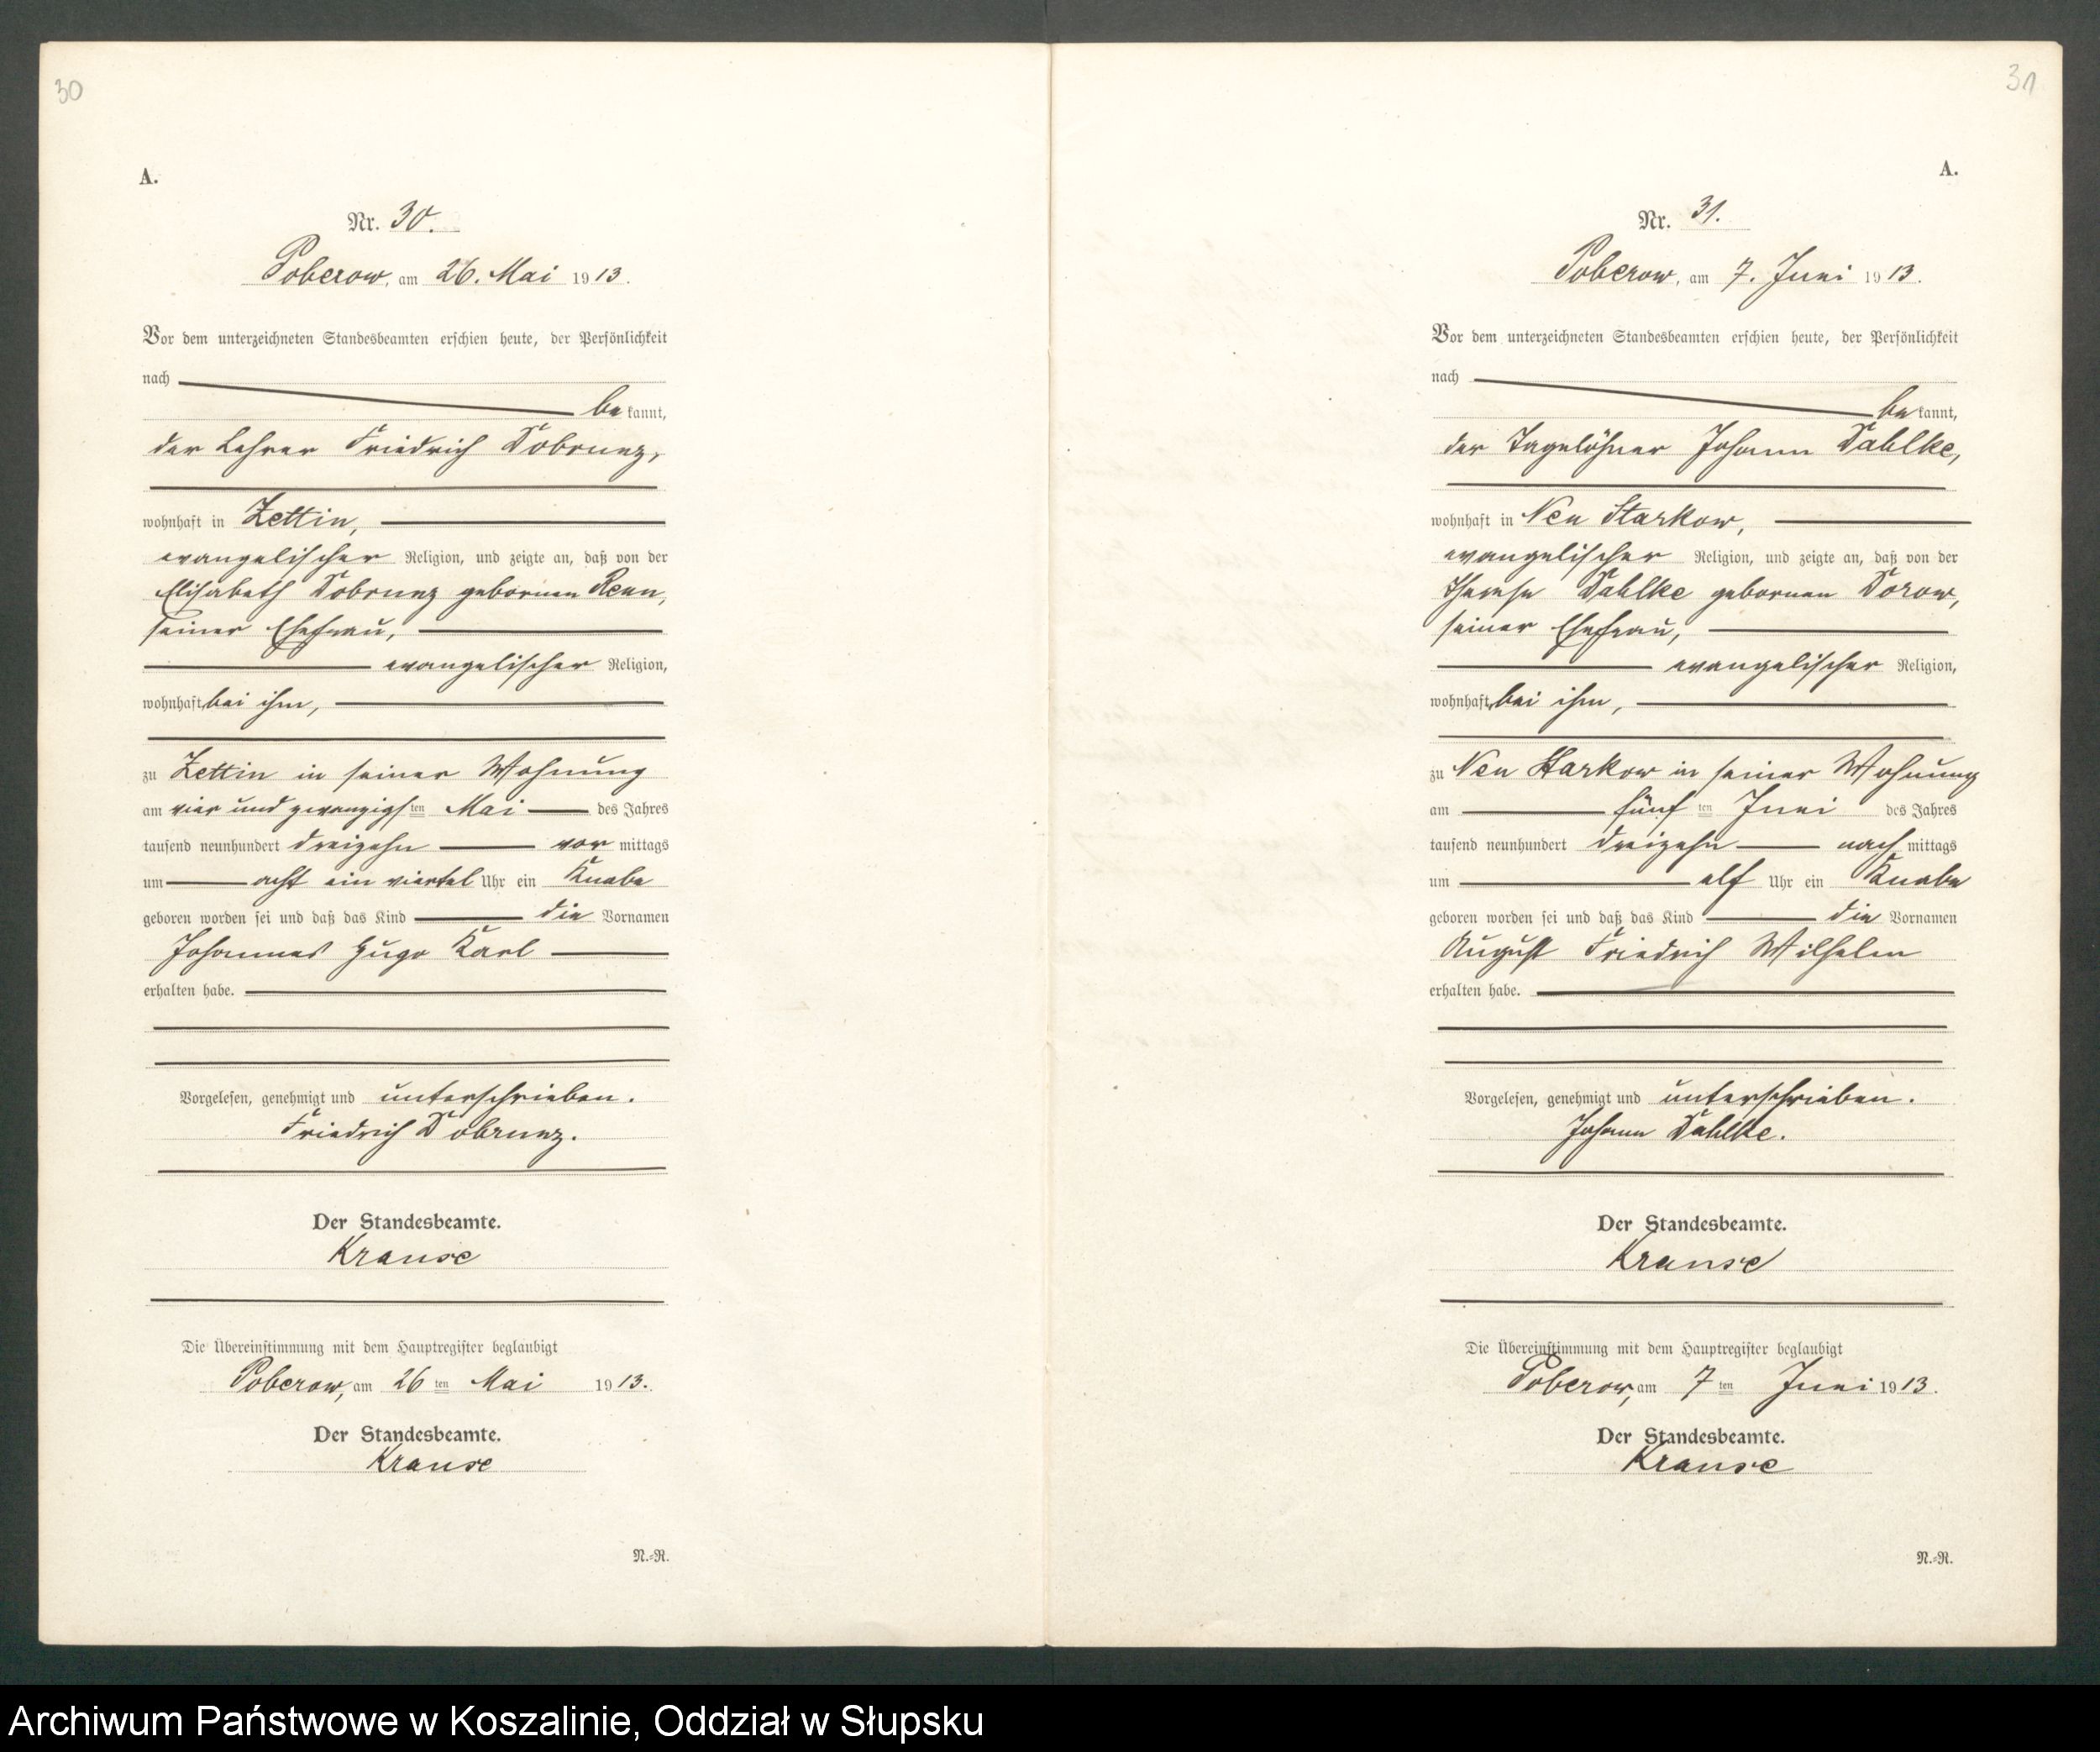 30
A.
Nr. 30.
Poberow, am 26. Mai 1913.
Vor dem unterzeichneten Standesbeamten erschien heute, der Persönlichkeit
nach
be kannt,
der Lehrer Friedrich Dobrunz,
wohnhaft in Zettin,
evangelischer Religion, und zeigte an, daß von der
Elisabeth Dobrunz gebornen Renn,
seiner Ehefrau,
evangelischer Religion,
wohnhaft bei ihm,
zu Zettin in seiner Wohnung
am vier und zwanzigsten Mai des Jahres
tausend neunhundert dreizehn vor mittags
um acht ein viertel Uhr ein Knabe
geboren worden sei und daß das Kind die Vornamen
Johannes Hugo Karl
erhalten habe.
Vorgelesen, genehmigt und unterschrieben.
Friedrich Dobrunz.
Der Standesbeamte.
Krause
Die Übereinstimmung mit dem Hauptregister beglaubigt
Poberow, am 26 ten Mai 1913.
Der Standesbeamte.
Krause
N.-R.
31
A.
Nr. 31.
Poberow, am 7. Juni 1913.
Vor dem unterzeichneten Standesbeamten erschien heute, der Persönlichkeit
nach
be kannt,
der Tagelöhner Johann Dahlke,
wohnhaft in Neu Starkow,
evangelischer Religion, und zeigte an, daß von der
Therese Dahlke gebornen Dorow,
seiner Ehefrau,
evangelischer Religion,
wohnhaft bei ihm,
zu Neu Starkow in seiner Wohnung
am fünf ten Juni des Jahres
tausend neunhundert dreizehn nach mittags
um elf Uhr ein Knabe
geboren worden sei und daß das Kind die Vornamen
August Friedrich Wilhelm
erhalten habe.
Vorgelesen, genehmigt und unterschrieben.
Johann Dahlke.
Der Standesbeamte.
Krause
Die Übereinstimmung mit dem Hauptregister beglaubigt
Poberow, am 7 ten Juni 1913.
Der Standesbeamte.
Krause
N.-R.
Archiwum Państwowe w Koszalinie, Oddział w Słupsku